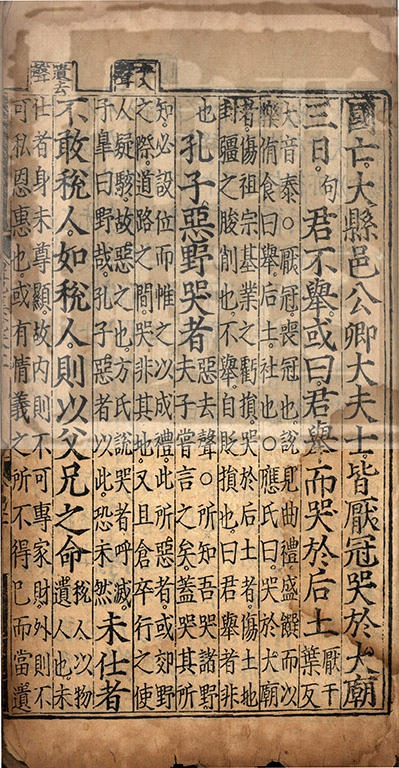 國亡大縣邑公卿大夫士皆厭冠哭於大廟
三日句君不舉或曰君舉而哭於后土厭于葉反
大音泰○厭冠喪冠也說見曲禮盛饌而以
樂侑食曰舉后土社也○應氏曰哭於大廟
者傷祖宗基業之虧損哭於后土者傷土地
封疆之朘削也不舉自貶損也曰君舉者非
也孔子惡野哭者惡去聲○所知吾哭諸野
夫子嘗言之矣蓋哭其所
知必設位而帷之以成禮此所惡者或郊野
之際道路之間哭非其地又且倉卒行之使
人疑駭故惡之也方氏說哭者呼滅
子皋曰野哉孔子惡者以此恐未然未仕者
不敢稅人如稅人則以父兄之命稅人以物
遺人也未
仕者身未尊顯故內則不可專家財外則不
可私恩惠也或有情義之所不得已而當遺
遺去聲